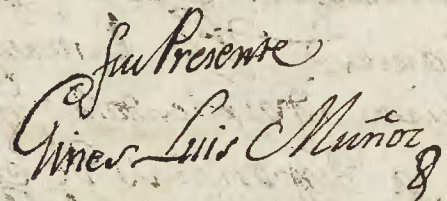 fui Presente
Gines Luis Muñoz